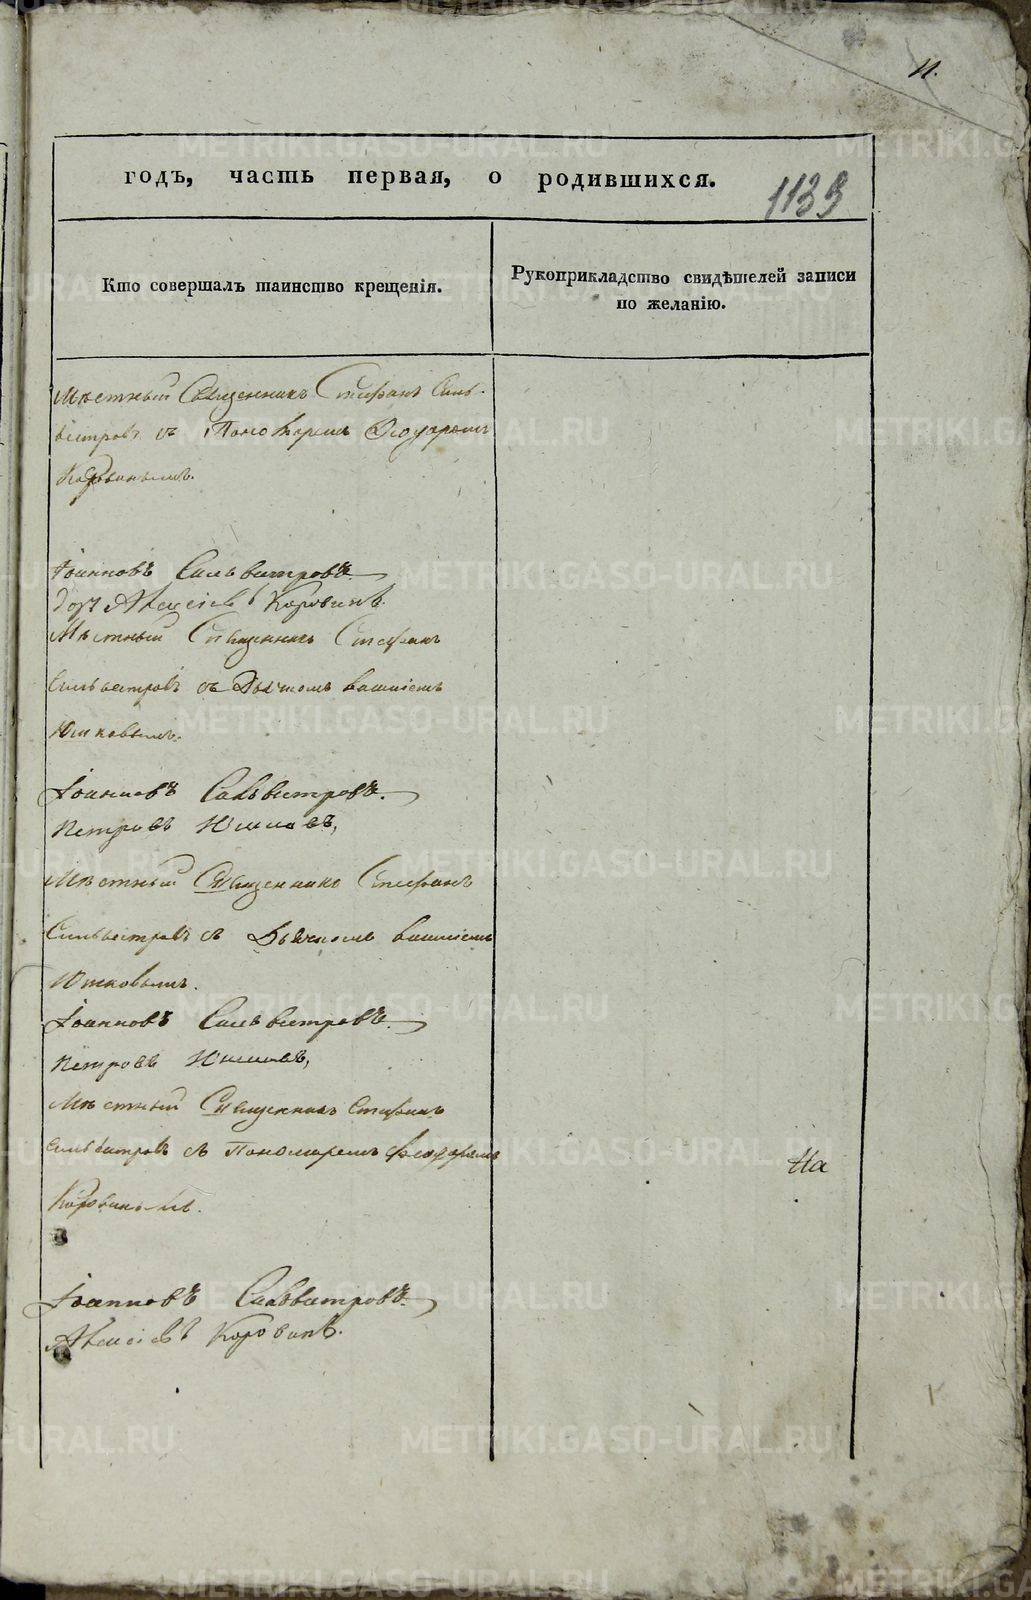 11.
годъ, часть первая, о родившихся.
1139
Кто совершалъ таинство крещенія.
Рукоприкладство свидѣтелей записи
по желанію.
Мѣстный Священникъ Стефанъ Силь-
вестровъ съ Пономаремъ Ѳеодоромъ
Коровинымъ.
Іоанновъ Сильвестровъ
Алексіевъ Коровинъ.
Мѣстный Священникъ Стефанъ
Сильвестровъ съ Дьячкомъ
Юшковымъ.
Іоанновъ Сильвестровъ.
Петровъ Юшковъ,
Мѣстный Священникъ Стефанъ
Сильвестровъ съ Дьячкомъ
Юшковымъ.
Іоанновъ Сильвестровъ.
Петровъ Юшковъ,
Мѣстный Священникъ Стефанъ
Сильвестровъ съ Пономаремъ Ѳеодоромъ
На
Коровинымъ.
Іоанновъ Сильвестровъ.
Алексіевъ Коровинъ.
METRIKI.GASO-URAL.RU